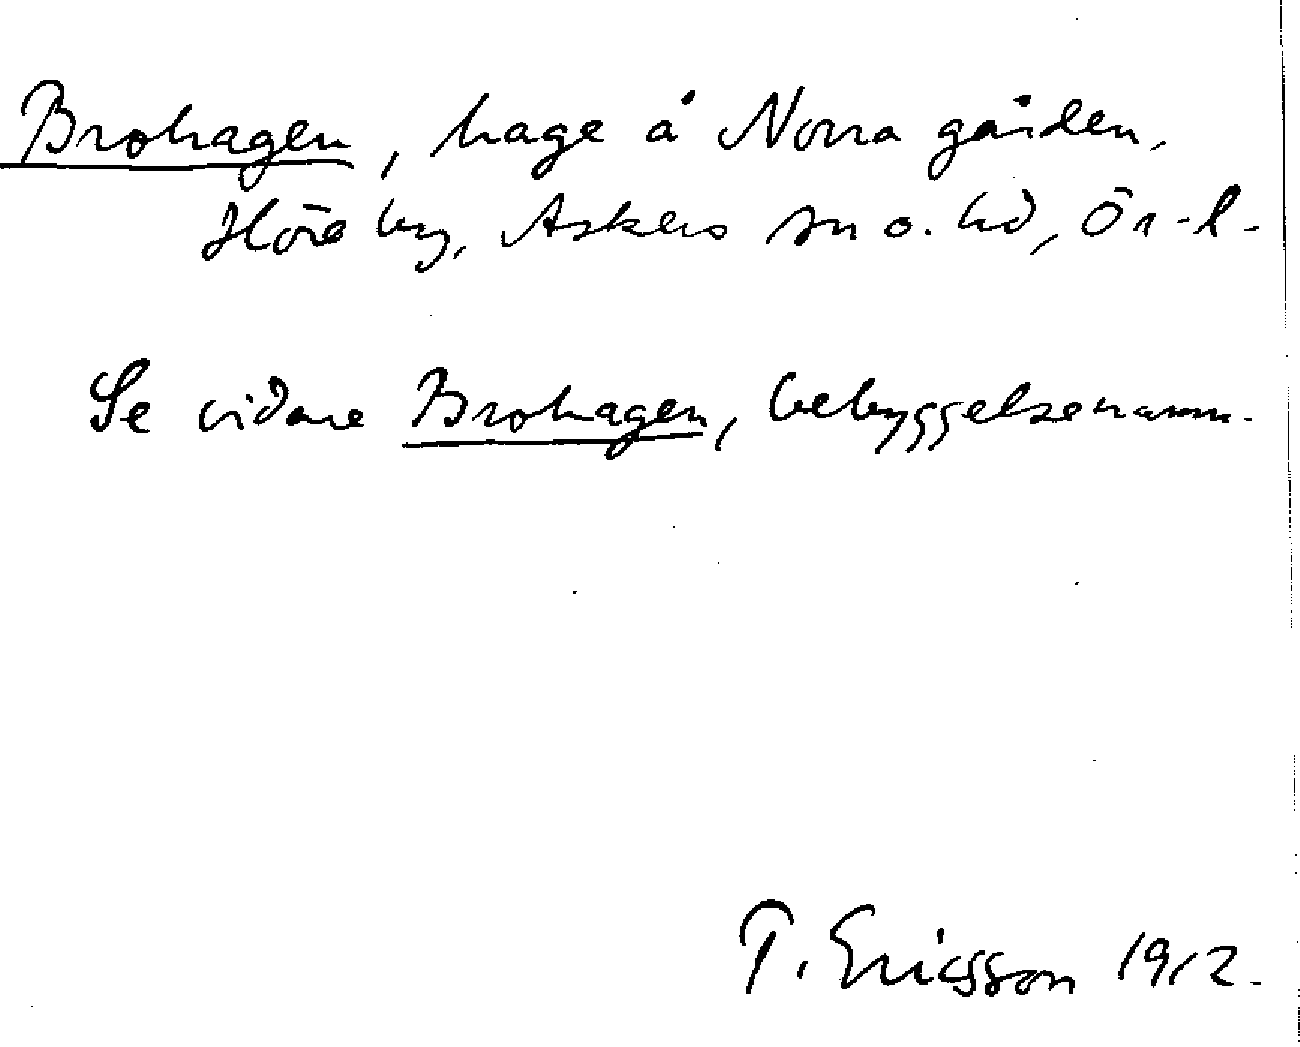 Brohagen, hage å Norra gården,
by, Askers sn o. hd, Ör-l.
Se vidare Brohagen, bebyggelsenamn.
T. Ericsson 1912.